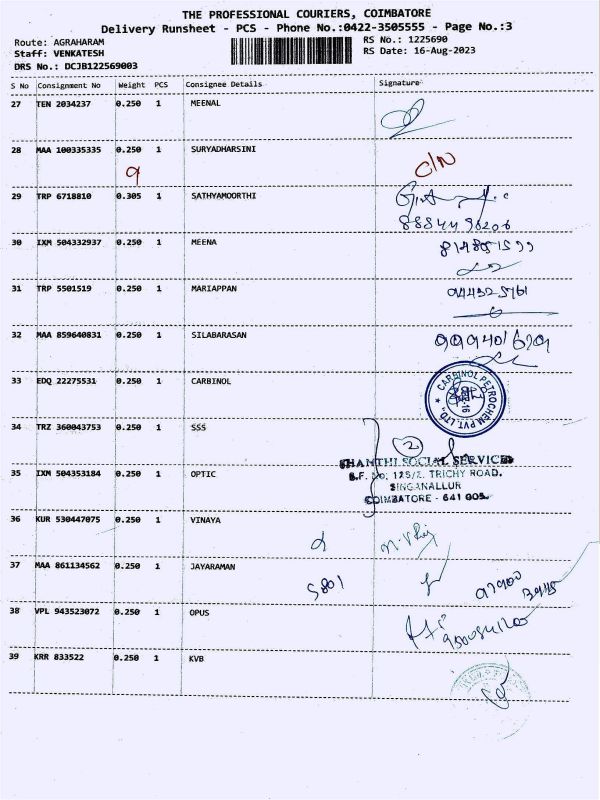 THE PROFESSIONAL COURIERS, COIMBATORE
Delivery Runsheet - PCS - Phone No.:0422-3505555 - Page No.:3
Route: AGRAHARAM
RS No.: 1225690
Staff: VENKATESH
RS Date: 16-Aug-2023
DRS No.: DCJB122569003
S No Consignment No Weight PCS Consignee Details Signature
27 TEN 2034237 0.250 1 MEENAL
28 MAA 100335335 0.250 1 SURYADHARSINI
C/N
29 TRP 6718810 0.305 1 SATHYAMOORTHI
30 IXM 504332937 0.250 1 MEENA
31 TRP 5501519 0.250 1 MARIAPPAN
32 MAA 859640831 0.250 1 SILABARASAN
33 EDQ 22275531 0.250 1 CARBINOL
CARBINOL PETROCHEM PVT. LTD.,
34 TRZ 360043753 0.250 1 SSS
2
SHANTHI SOCIAL SERVICES
S.F. No: 125/2, TRICHY ROAD.
35 IXM 504353184 0.250 1 OPTIC
SINGANALLUR
COIMBATORE - 641 005.
36 KUR 530447075 0.250 1 VINAYA
37 MAA 861134562 0.250 1 JAYARAMAN
5801
38 VPL 943523072 0.250 1 OPUS
39 KRR 833522 0.250 1 KVB